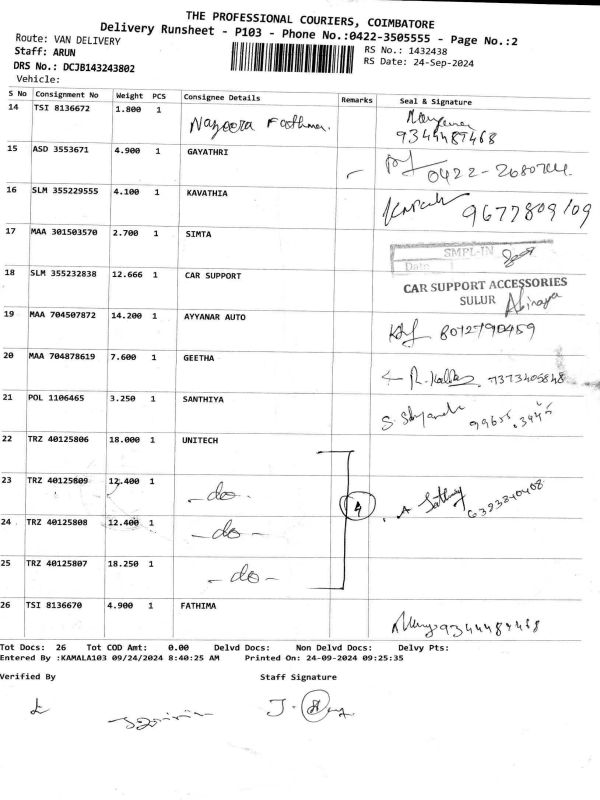 THE PROFESSIONAL COURIERS, COIMBATORE
Delivery Runsheet - P103 - Phone No.:0422-3505555 - Page No.:2
Route: VAN DELIVERY
Staff: ARUN
DRS No.: DCJB143243802
Vehicle:
RS No.: 1432438
RS Date: 24-Sep-2024
S No Consignment No Weight PCS Consignee Details Remarks Seal & Signature
14 TSI 8136672 1.800 1 Nazeera Fathima.
9344487468
15 ASD 3553671 4.900 1 GAYATHRI
16 SLM 355229555 4.100 1 KAVATHIA 9677809109
17 MAA 301503570 2.700 1 SIMTA
SMPL-IN
Date
18 SLM 355232838 12.666 1 CAR SUPPORT CAR SUPPORT ACCESSORIES
SULUR Abinaya
19 MAA 704507872 14.200 1 AYYANAR AUTO 8072790459
20 MAA 704878619 7.600 1 GEETHA 7373405848
21 POL 1106465 3.250 1 SANTHIYA
22 TRZ 40125806 18.000 1 UNITECH
23 TRZ 40125809 12.400 1 - do - 4
24 TRZ 40125808 12.400 1 - do -
25 TRZ 40125807 18.250 1 - do -
26 TSI 8136670 4.900 1 FATHIMA 9344487468
Tot Docs: 26 Tot COD Amt: 0.00 Delvd Docs: Non Delvd Docs: Delvy Pts:
Entered By :KAMALA103 09/24/2024 8:40:25 AM Printed On: 24-09-2024 09:25:35
Verified By Staff Signature